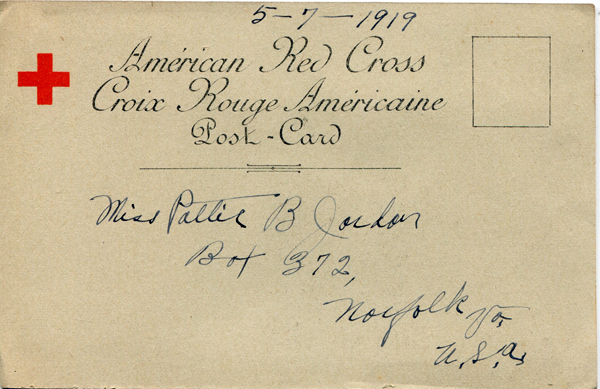 5-7-1919
Américan Red Cross
Croix Rouge Américaine
Post-Card
Miss Pattie B Jordan
Box 372,
Norfolk Va.
U.S.a.